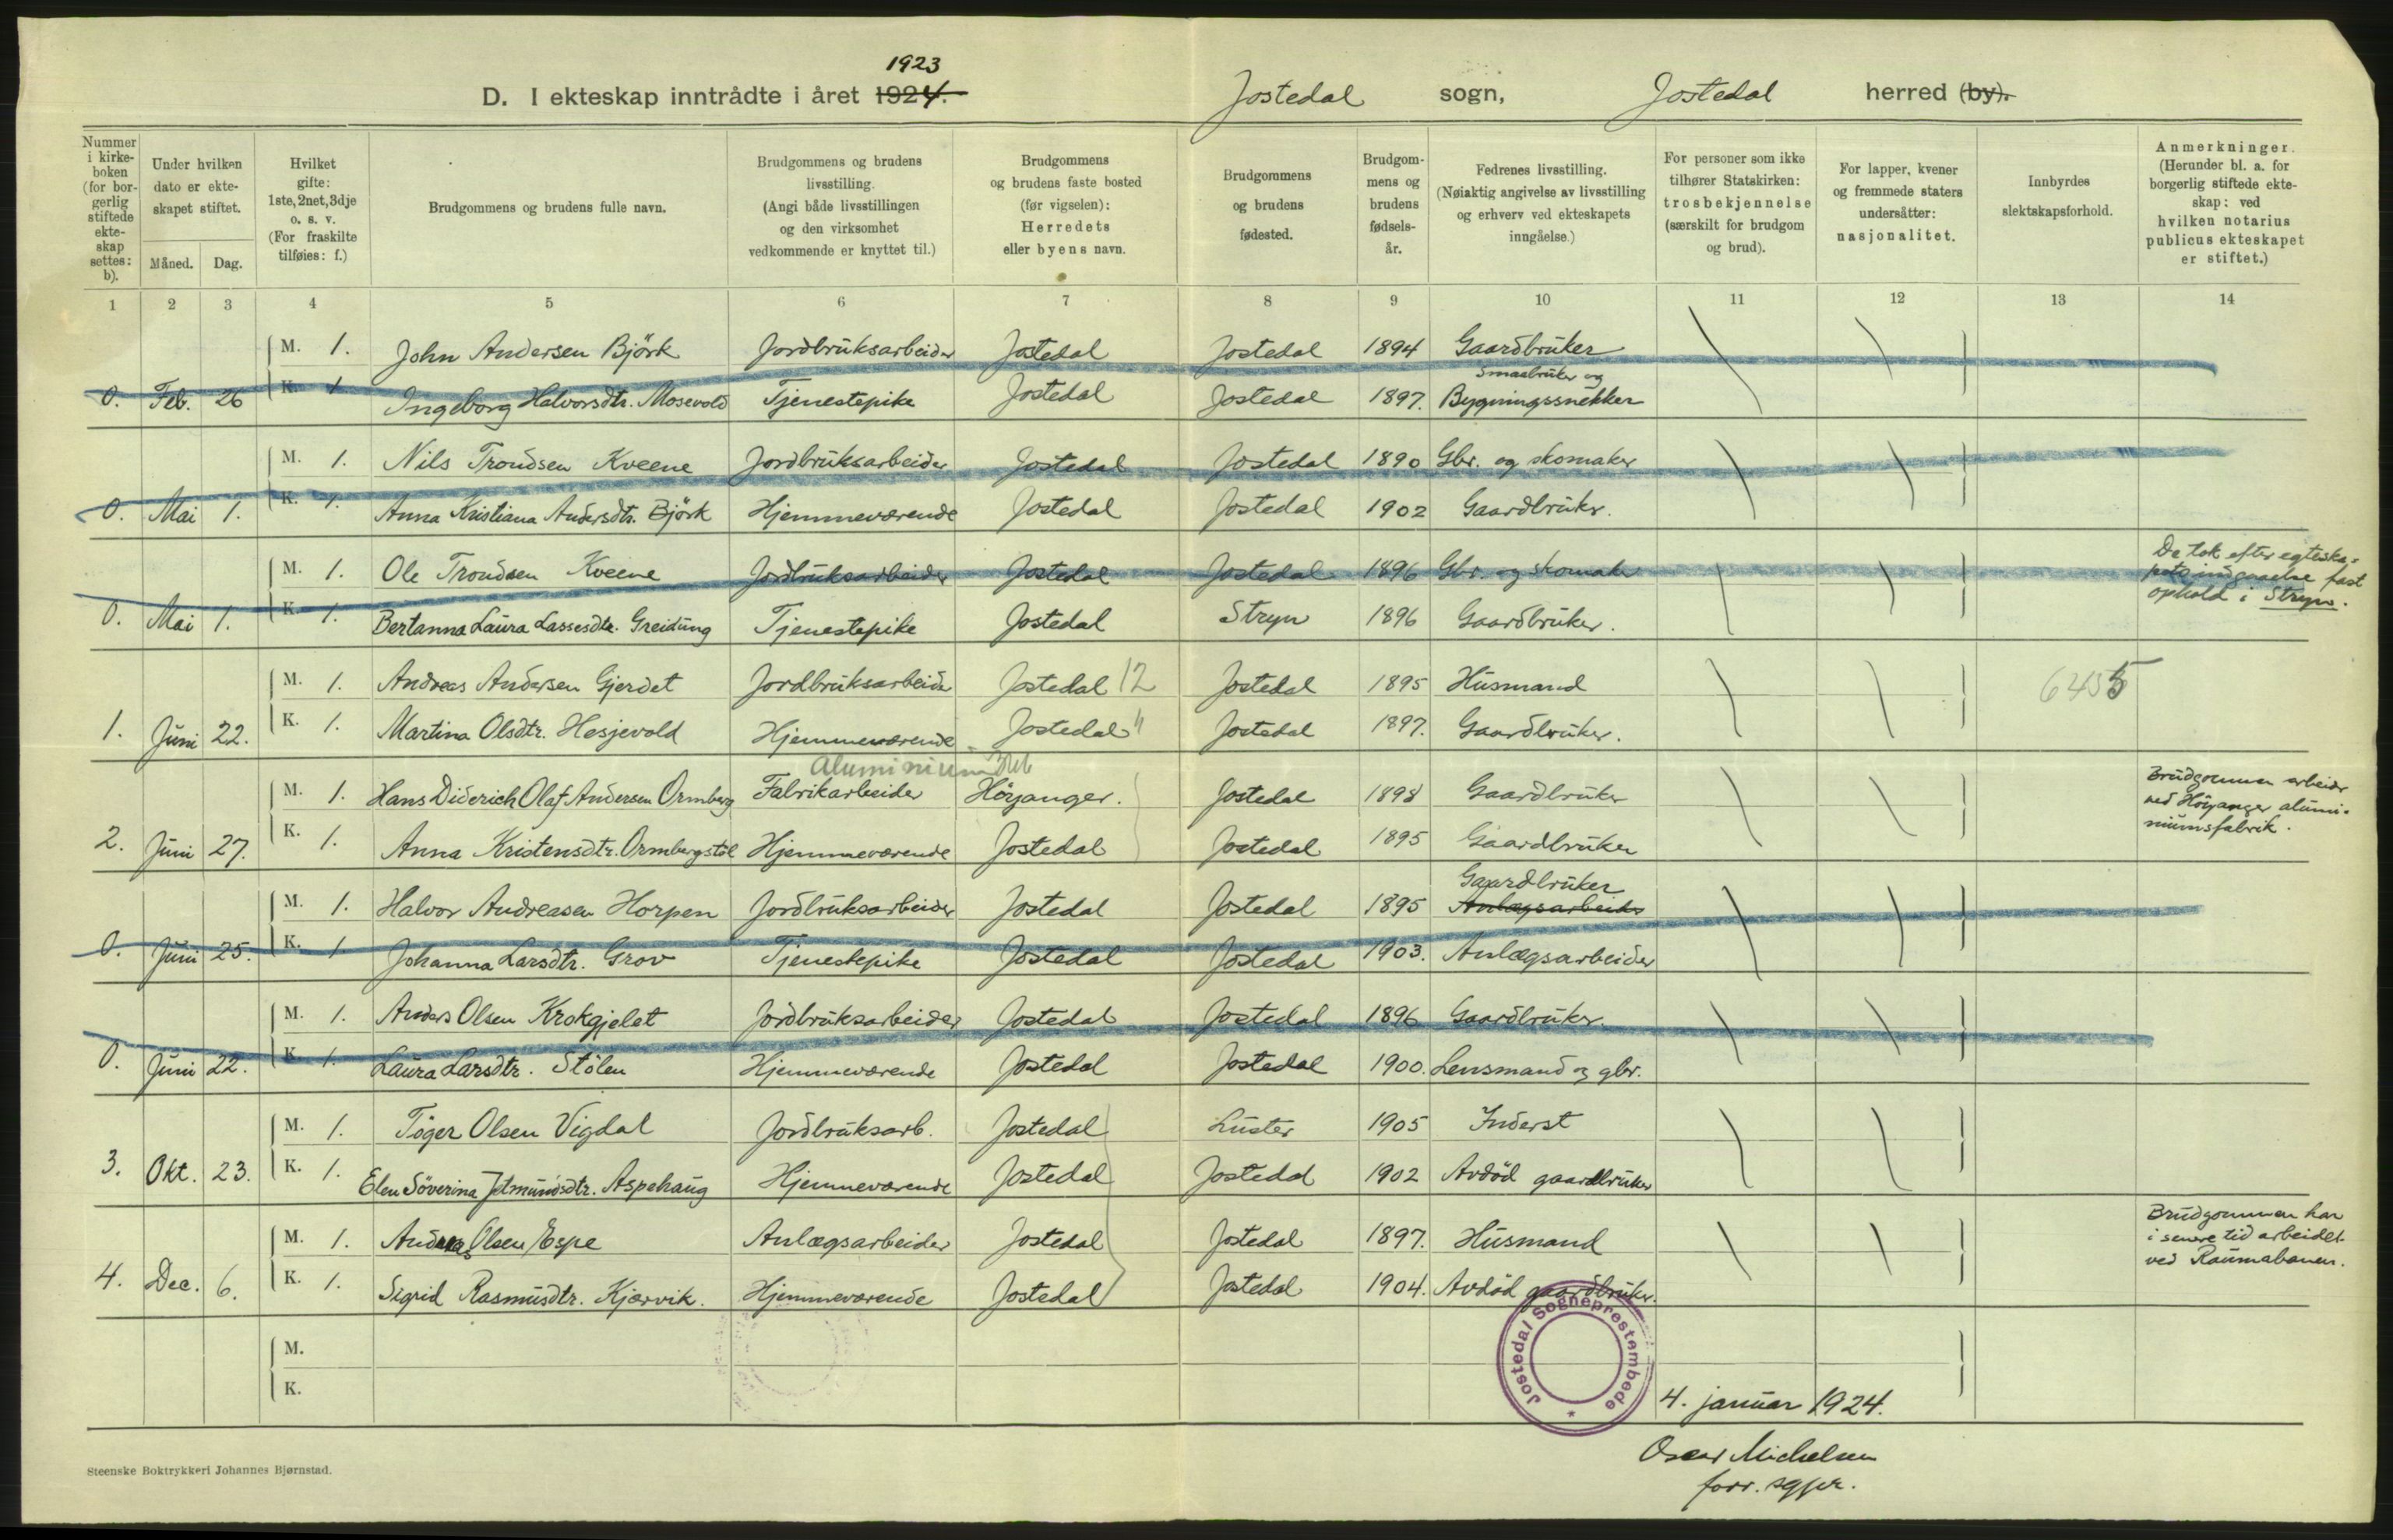 1923
D. I ekteskap inntrådte i året 1924. Jostedal sogn, Jostedal herred (by).
Nummer i kirke-boken (for bor-gerlig stiftede ekte-skap settes: b).
Under hvilken dato er ekte-skapet stiftet.
Måned. Dag.
Hvilket gifte: 1ste, 2net, 3dje o. s. v. (For fraskilte tilføies: f.)
Brudgommens og brudens fulle navn.
Brudgommens og brudens livsstilling. (Angi både livsstillingen og den virksomhet vedkommende er knyttet til.)
Brudgommens og brudens faste bosted (før vigselen): Herredets eller byens navn.
Brudgommens og brudens fødested.
Brudgom-mens og brudens fødsels-år.
Fedrenes livsstilling. (Nøiaktig angivelse av livsstilling og erhverv ved ekteskapets inngåelse.)
For personer som ikke tilhører Statskirken: trosbekjennelse (særskilt for brudgom og brud).
For lapper, kvener og fremmede staters undersåtter: nasjonalitet.
Innbyrdes slektskapsforhold.
Anmerkninger. (Herunder bl. a. for borgerlig stiftede ekte-skap: ved hvilken notarius publicus ekteskapet er stiftet.)
1 2 3 4 5 6 7 8 9 10 11 12 13 14
M. 1. John Andersen Björk Jordbruksarbeider Jostedal Jostedal 1894 Gaardbruker
Smaabruker og
0. Feb. 26 K. 1 Ingeborg Halvorsdtr. Mosevold Tjenestepike Jostedal Jostedal 1897. Bygningssnekker
M. 1. Nils Trondsen Kveene Jordbruksarbeider Jostedal Jostedal 1890 Gbr. og skomaker
0. Mai 1. K. 1. Anna Kristiana Andersdtr. Björk Hjemmeværende Jostedal Jostedal 1902 Gaardbruker.
M. 1. Ole Trondsen Kveene Jordbruksarbeider Jostedal Jostedal 1896 Gbr. og skomaker De tok efter egteska-
pets indgaaelse fast
ophold i Stryn.
0. Mai 1. K. 1. Bertanna Laura Lassesdtr. Greidung Tjenestepike Jostedal Stryn 1896 Gaardbruker.
M. 1. Andreas Andersen Gjerdet Jordbruksarbeider Jostedal 12 Jostedal 1895 Husmand 6455
1. Juni 22. K. 1. Martina Olsdtr. Hesjevold Hjemmeværende Jostedal " Jostedal 1897. Gaardbruker.
Aluminium
M. 1. Hans Diderich Olaf Andersen Ormberg Fabrikarbeider Höyanger. Jostedal 1898 Gaardbruker Brudgommen arbeider
ved Höyanger alumi-
niumsfabrik.
2. Juni 27. K. 1. Anna Kristensdtr. Ormbergstøl Hjemmeværende Jostedal Jostedal 1895 Gaardbruker
Gaardbruker
M. 1. Halvor Andreasen Horpen Jordbruksarbeider Jostedal Jostedal 1895 Anlægsarbeider
0. Juni 25. K. 1 Johanna Larsdtr. Grov Tjenestepike Jostedal Jostedal 1903. Anlægsarbeider
M. 1. Anders Olsen Krokgjelet Jordbruksarbeider Jostedal Jostedal 1896 Gaardbruker.
0. Juni 22. K. 1. Laura Larsdtr. Stölen Hjemmeværende Jostedal Jostedal 1900. Lensmand og gbr.
M. 1. Töger Olsen Vigdal Jordbruksarb. Jostedal Luster 1905 Inderst
3. Okt. 23. K. 1. Elen Söverina Jetmundsdtr. Aspehaug Hjemmeværende Jostedal Jostedal 1902 Avdöd gaardbruker
M. 1. Andreas Olsen Espe Anlægsarbeider Jostedal Jostedal 1897. Husmand Brudgommen har
i senere tid arbeidet
ved Raumabanen.
4. Dec. 6. K. 1. Sigrid Rasmusdtr. Kjærvik. Hjemmeværende Jostedal Jostedal 1904. Avdöd gaardbruker.
M.
K.
Jostedal Sogneprestembede
4. januar 1924.
Oscar Michelsen
forr. sgpr.
Steenske Boktrykkeri Johannes Bjørnstad.